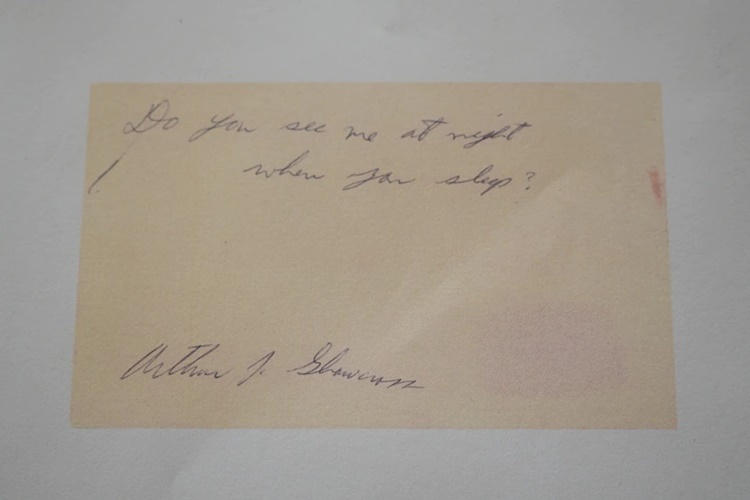 Do you see me at night
when you sleep?
Arthur J. Shawcross